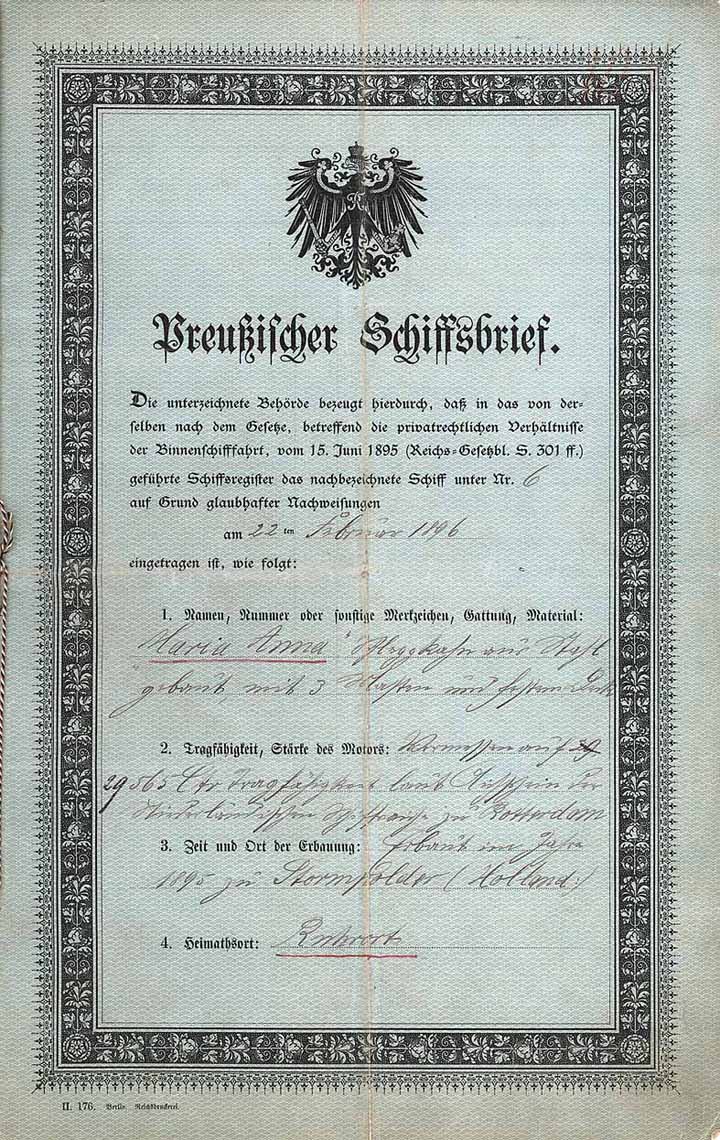 Preußischer Schiffsbrief.
Die unterzeichnete Behörde bezeugt hierdurch, daß in das von der-
selben nach dem Gesetze, betreffend die privatrechtlichen Verhältnisse
der Binnenschifffahrt, vom 15. Juni 1895 (Reichs-Gesetzbl. S. 301 ff.)
geführte Schiffsregister das nachbezeichnete Schiff unter Nr. 6
auf Grund glaubhafter Nachweisungen
am 22ten Februar 1896
eingetragen ist, wie folgt:
1. Namen, Nummer oder sonstige Merkzeichen, Gattung, Material:
"Maria Anna" Schleppkahn aus Stahl
gebaut, mit 3 Masten und festem Deck
2. Tragfähigkeit, Stärke des Motors: Vermessen auf
29565 Ctr Tragfähigkeit laut Aichschein der
Niederländischen zu Rotterdam
3. Zeit und Ort der Erbauung: Erbaut im Jahre
1895 zu Stormpolder (Holland.)
4. Heimathsort: Ruhrort
II. 176. Berlin. Reichsdruckerei.